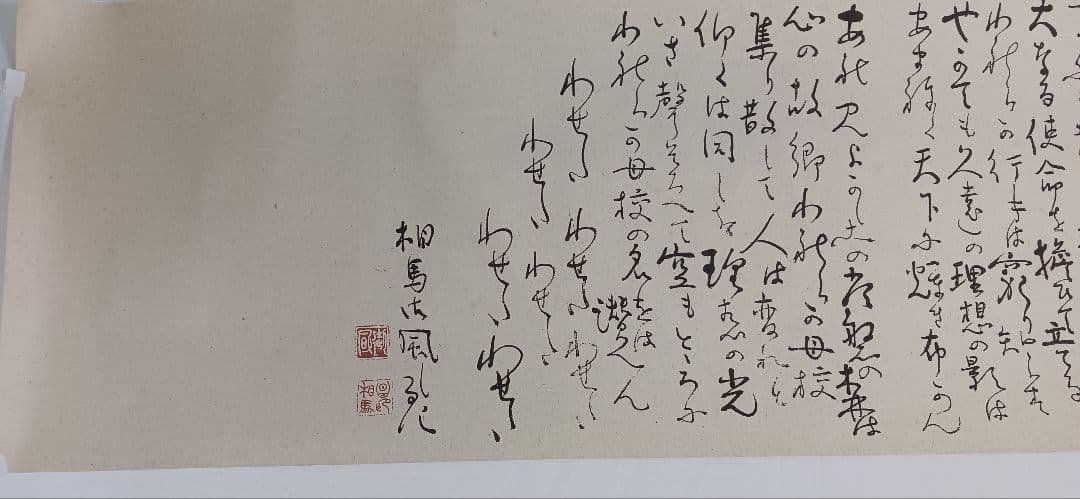 大なる使命を擔ひて立てる
われらか行手は窮り知らす
やかても久遠の理想の影は
あまねく天下に輝き布かん
あれ見よかしこの常磐の森は
心の故郷われらか母校
集り散して人は変れと
仰くは同しき理想の光
いさ聲そろへて空もとろに
われらか母校の名をは讃へん
わせた わせた わせた
わせた わせた
わせた わせた
相馬御風